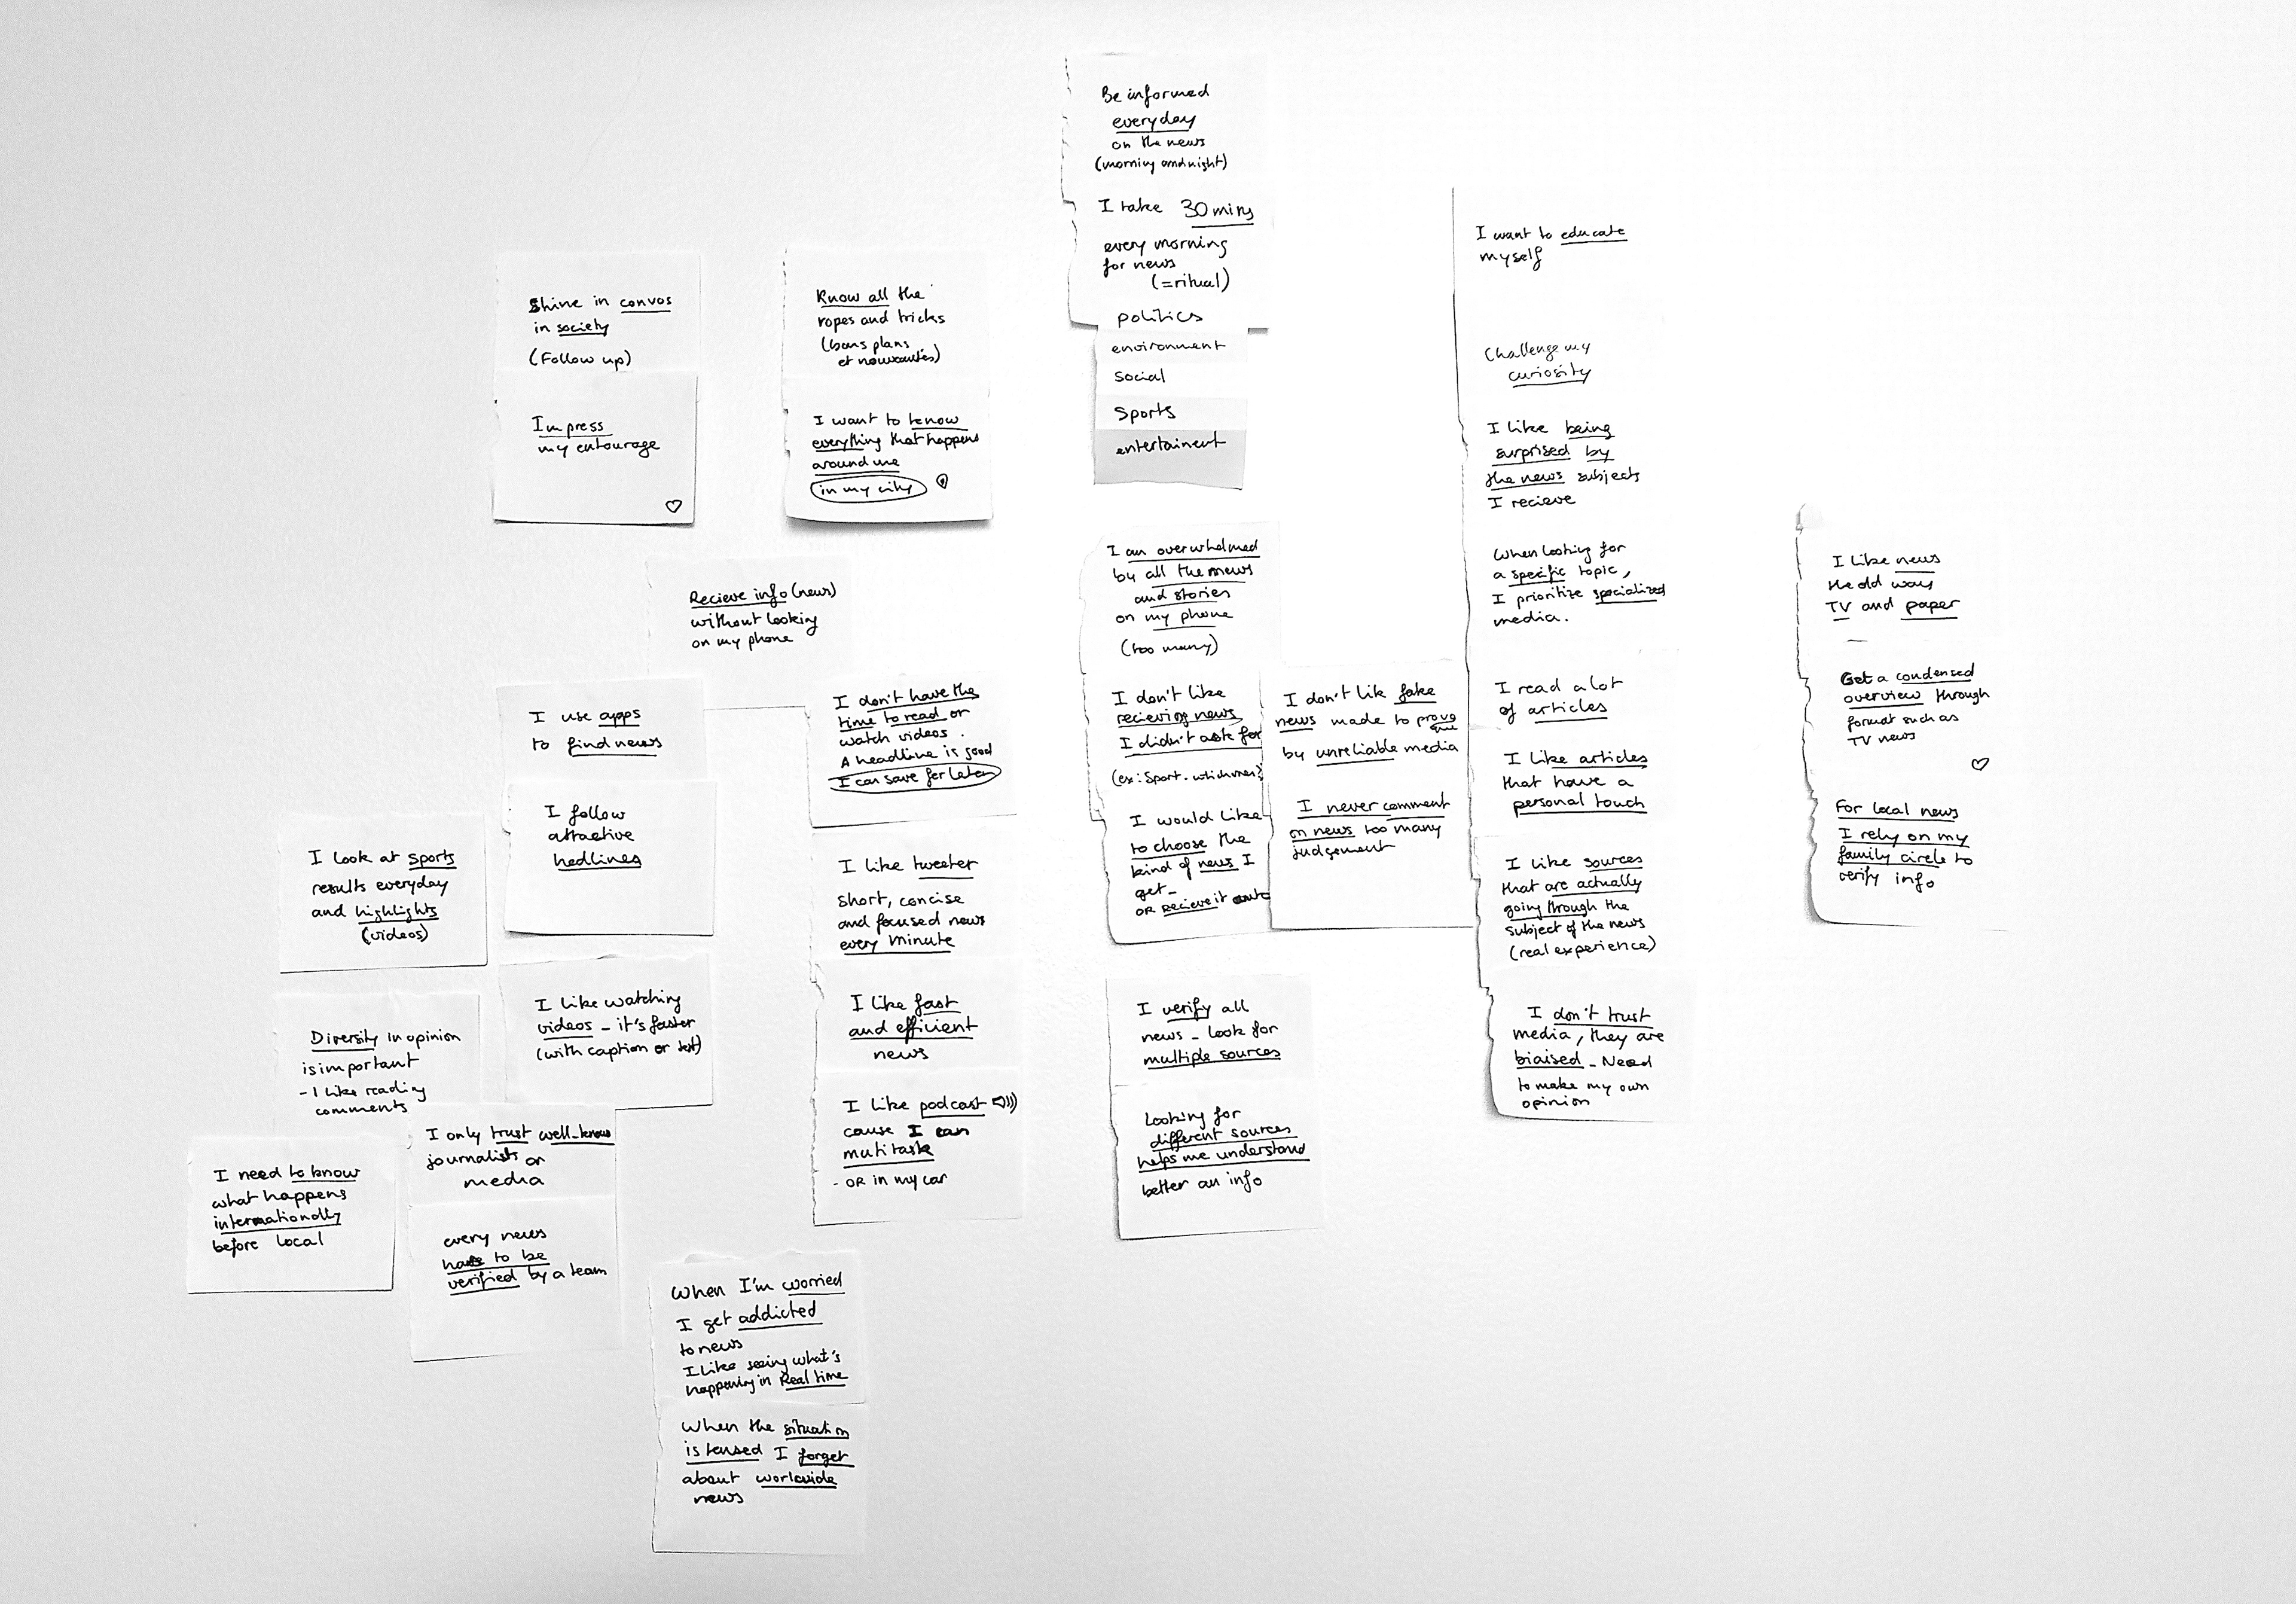 Be informed
everyday
on the news
(morning and night)
I take 30 mins
every morning
for news
(=ritual)
politics
environment
social
Sports
entertainment
Shine in convos
in society
(Follow up)
Impress
my entourage
Know all the
ropes and tricks
(bons plans
et nouveautés)
I want to know
everything that happens
around me
in my city
Recieve info (news)
without looking
on my phone
I use apps
to find news
I follow
attractive
hedlines
I like watching
videos - it's faster
(with caption or text)
I look at sports
results everyday
and highlights
(videos)
Diversity in opinion
is important
- I like reading
comments
I need to know
what happens
internationally
before local
I only trust well-known
journalists or
media
every news
has to be
verified by a team
When I'm worried
I get addicted
to news
I like seeing what's
happening in Real time
When the situation
is tensed I forget
about worldwide
news
I don't have the
time to read or
watch videos.
A headline is good
I can save for later
I like tweeter
short, concise
and focused news
every minute
I like fast
and efficient
news
I like podcast
cause I can
multitask
- OR in my car
I am overwhelmed
by all the news
and stories
on my phone
(too many)
I don't like
recieving news
I didn't ask for
(ex: Sport
I would like
to choose the
kind of news I
get -
OR Recieve it auto
I don't lik fake
news made to provo
que
by unreliable media
I never comment
on news too many
judgement
I verify all
news - look for
multiple sources
Looking for
different sources
helps me understand
better an info
I want to educate
myself
Challenge my
curiosity
I like being
surprised by
the news subjects
I recieve
When looking for
a specific topic,
I prioritize specialized
media.
I read a lot
of articles
I like articles
that have a
personal touch
I like sources
that are actually
going through the
subject of the news
(real experience)
I don't trust
media, they are
biaised - Need
to make my own
opinion
I like news
the old ways
TV and paper
Get a condensed
overview through
format such as
TV news
For local news
I rely on my
family circle to
verify info